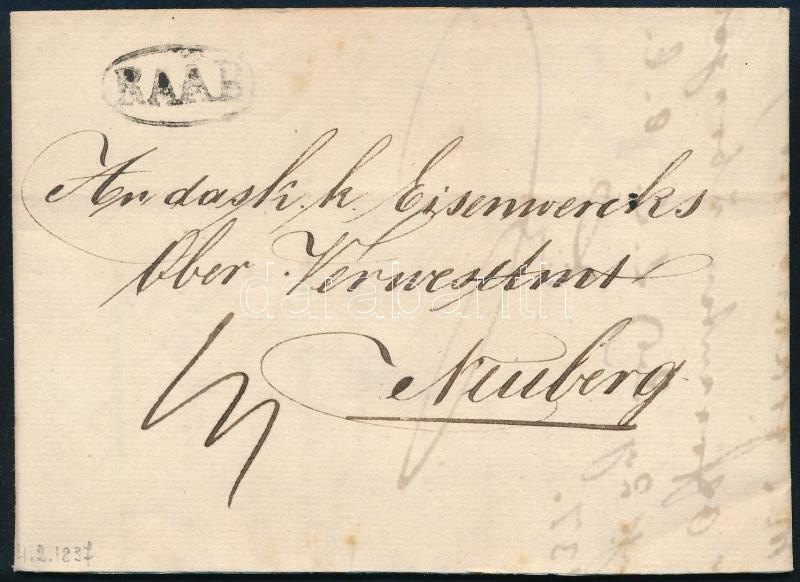 RAAB
An das k. k. Eisenwercks
Ober Verwesamt
Neuberg
darabanth
4.2.1837